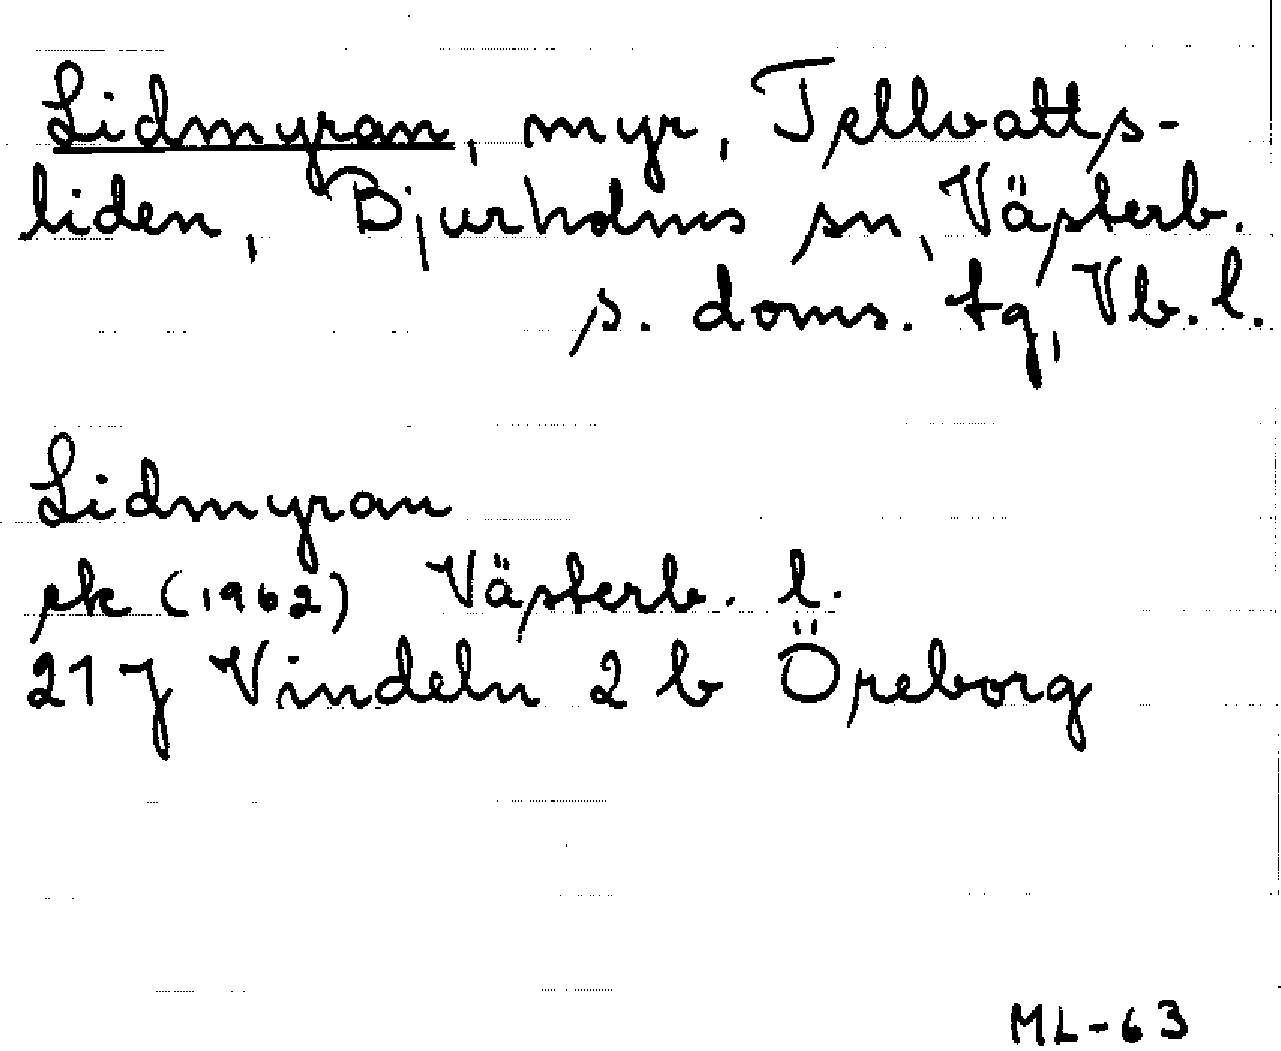 Lidmyran, myr, Tellvatts-
liden, Bjurholms sn, Västerb.
s. doms. tg, Vb. l.
Lidmyran
ek (1962) Västerb. l.
21 J Vindeln 2 b Öreborg
ML-63